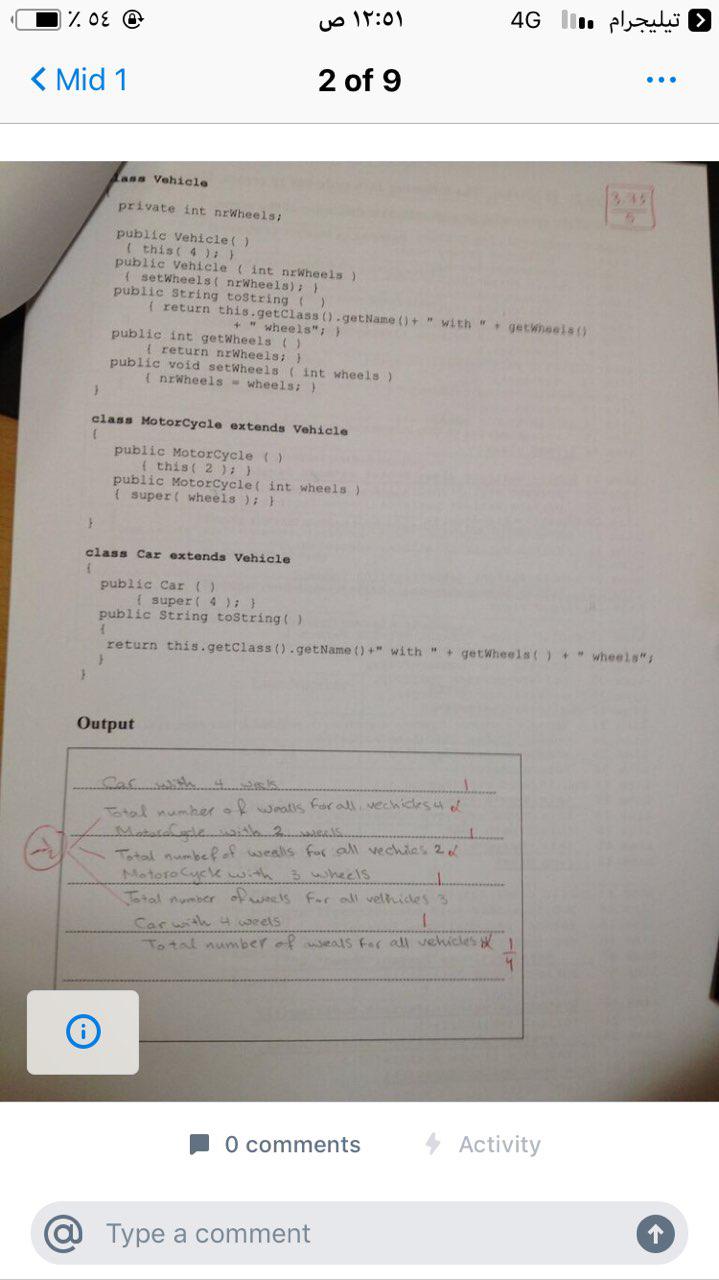 تيليجرام 4G ١٢:٥١ ص ٥٤ ٪
Mid 1 2 of 9 ...
lass Vehicle
3.75
5
private int nrWheels;
public Vehicle( )
{ this( 4 ); }
public Vehicle ( int nrWheels )
{ setWheels( nrWheels); }
public String toString ( )
{ return this.getClass().getName()+ " with " + getWheels()
+ " wheels"; }
public int getWheels ( )
{ return nrWheels; }
public void setWheels ( int wheels )
{ nrWheels = wheels; }
}
class MotorCycle extends Vehicle
{
public MotorCycle ( )
{ this( 2 ); }
public MotorCycle( int wheels )
{ super( wheels ); }
}
class Car extends Vehicle
{
public Car ( )
{ super( 4 ); }
public String toString( )
{
return this.getClass().getName()+" with " + getWheels( ) + " wheels";
}
}
Output
Car with 4 1
Total number of wealls for all vechicles 4
with 2 1
Total number of wealls for all 2
MotoroCycle with 3 wheels 1
Total number of weels for all 3
Car with 4 weels 1
Total number of weals for all vehicles
1
4
0 comments Activity
@ Type a comment